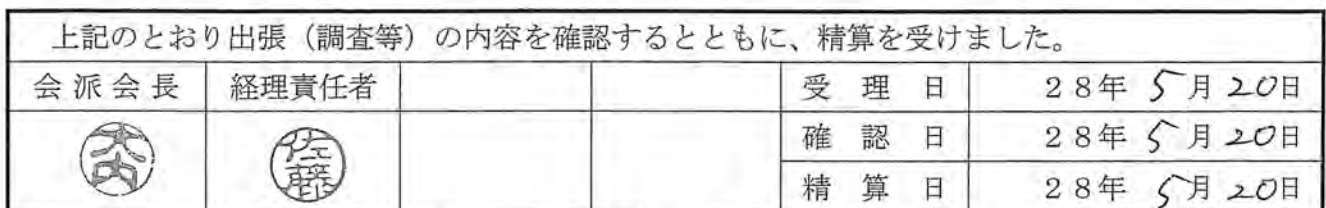 上記のとおり出張（調査等）の内容を確認するとともに、精算を受けました。
会派会長 経理責任者 受理日 28年 5月 20日
大内 佐藤 確認日 28年 5月 20日
精算日 28年 5月 20日